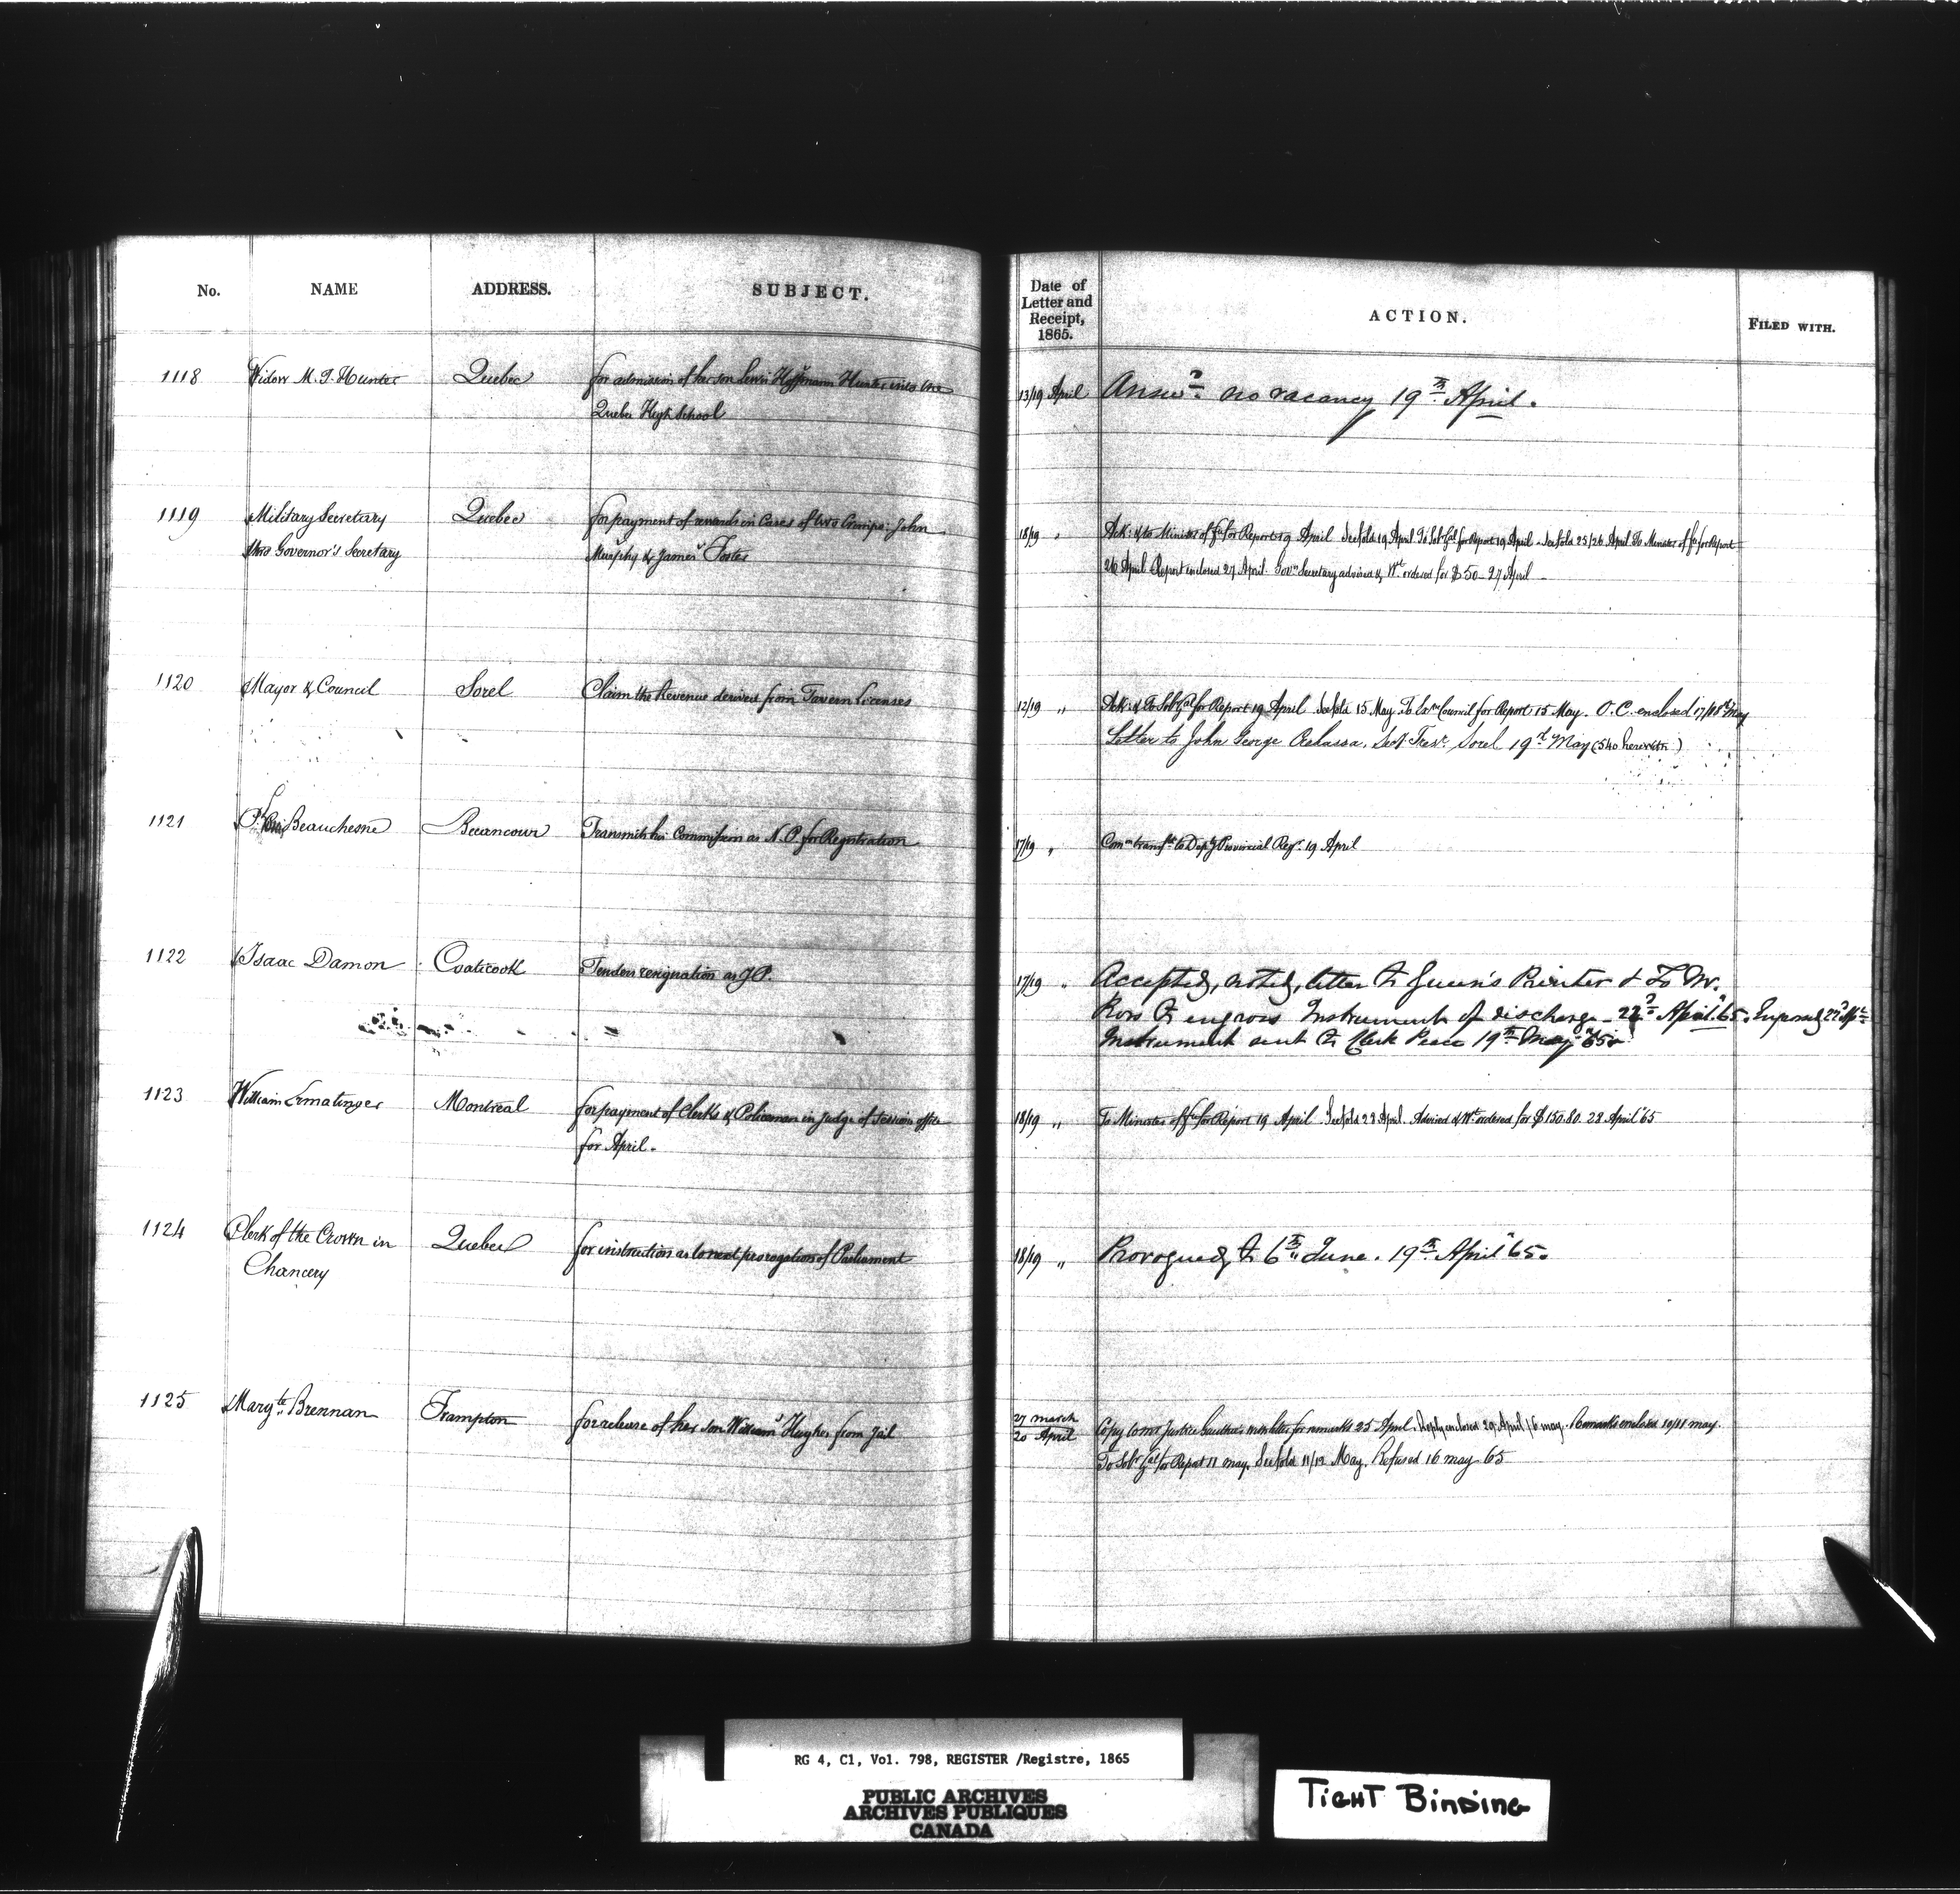 No. NAME ADDRESS. SUBJECT. Date of Letter and Receipt, 1865. ACTION. FILED WITH.
1118 Widow M. J. Hunter Quebec for admission of her son Lewis Hoffmann Hunter into the
Quebec High School
13/19 April Answd no vacancy 19th April.
1119 Military Secretary Quebec for payment of rewards in Cases of two Crimps: John
thro Governor's Secretary Murphy & James Foster
18/19 " Ack: & to Minister of for Report 19 April See fold 19 April To Solr Gal for Report 19 April - See fold 25/26 April To Minister of for Report
26 April Report enclosed 27 April. Govrs Secretary advised & Wt ordered for $50 - 27 April
1120 Mayor & Council Sorel Claim the Revenue derived from Tavern Licenses
12/19 " Ack: & To Solr Gal for Report 19 April See fold 15 May To Exve Council for Report 15 May. O.C. enclosed 17/18th May
Letter to John George Secy Treasr. Sorel 19th May (540 herewith)
1121 Beauchesne Becancour Transmits his Commission as N.P. for Registration
17/19 " Comn transfd to Depy Provincial Regr. 19 April
1122 Isaac Damon Coaticook Tenders resignation as J.P.
17/19 " Accepted, noted, letter to Queen's Printer & To Mr.
Ross to engross Instrument of discharge - 22d April '65. Engrossed 22d Apl
Instrument sent to Clerk Peace 19th May '65.
1123 William Ermatinger Montreal for payment of Clerks & Policeman in Judge of Session office
for April.
18/19 " To Minister of for Report 19 April See fold 28 April. Advised & Wt ordered for $150.80. 28 April '65
1124 Clerk of the Crown in Quebec for instruction as to next prorogation of Parliament
Chancery
18/19 " Prorogued to 6th June. 19th April '65.
1125 Margte Brennan Frampton for release of her son William Hughes from Jail
27 March
20 April
Copy to Mr Justice letter for remarks 25 April. Reply enclosed 29 April/6 May. Remarks enclosed 10/11 May.
To Solr Gal for Report 11 May. See fold 11/12 May. Refused 16 May 65
RG 4, C1, Vol. 798, REGISTER /Registre, 1865
PUBLIC ARCHIVES
ARCHIVES PUBLIQUES
CANADA
TIGHT BINDING